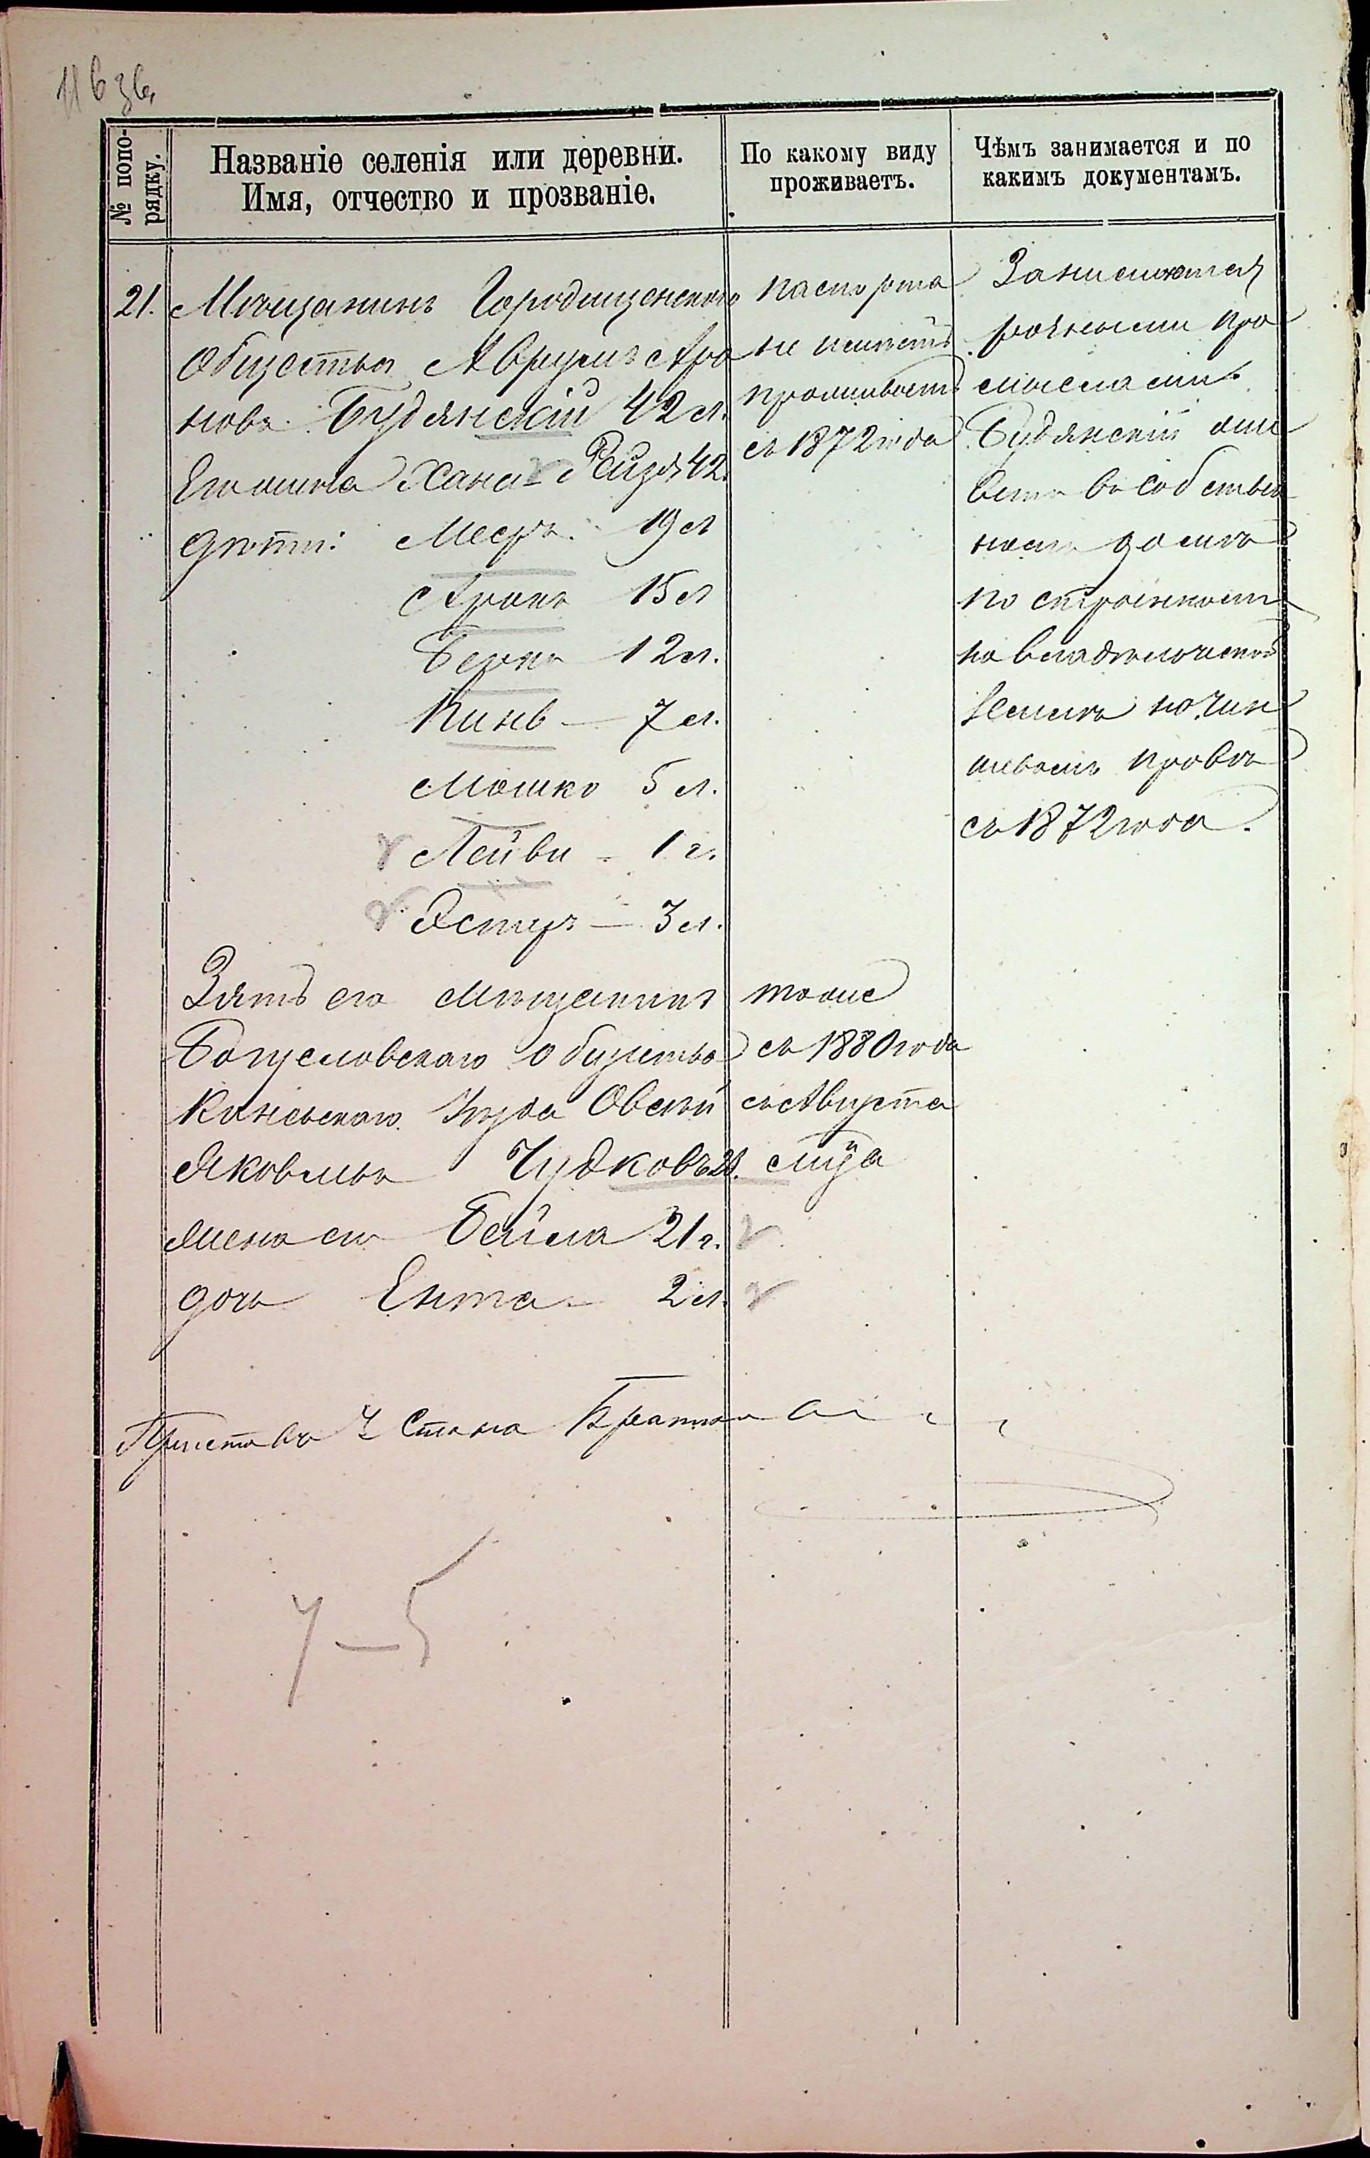 № попо-
рядку.
Названіе селенія или деревни.
Имя, отчество и прозваніе.
По какому виду
проживаетъ.
Чѣмъ занимается и по
какимъ документамъ.
21. Мѣщанинъ Городищенскаго
Общества Аврумъ Аро
новъ Будянскій 42 л.
Его жена Хана-Рейзя 42
дѣти: Мееръ 19 л
Аронъ 15 л
Берко 12 л.
7 л.
Мошко 5 л.
Лейви - 1 г.
Эстеръ — 3 л.
Зять его мѣщанинъ
Богуславскаго общества
Каневскаго уѣзда Овсей
Яковлевъ Чудковъ
жена его Бейла 21 г.
дочь Ента - 2 л.
паспорта
не имѣетъ
проживаетъ
съ 1872 года
тоже
съ 1880 года
съ Августа
м-ца
Занимается
разными про
мыслами.
Будянскій жи
ветъ въ собствен
номъ домѣ
построенномъ
на владѣльческой
землѣ на чин
шевомъ правѣ
съ 1872 года.
Приставъ 4 Стана
4 — 5